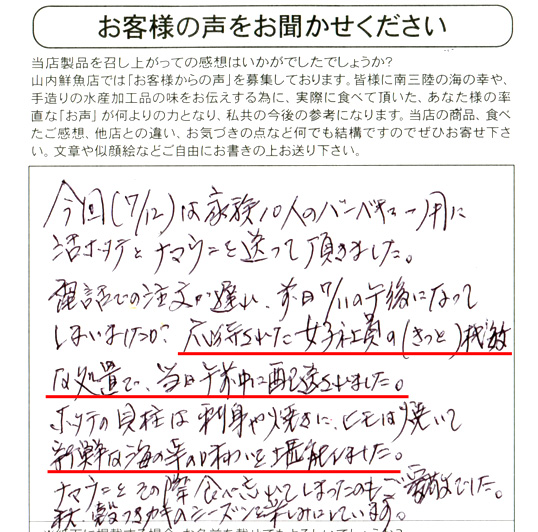 お客様の声をお聞かせください
当店製品を召し上がっての感想はいかがでしたでしょうか?
山内鮮魚店では「お客様からの声」を募集しております。皆様に南三陸の海の幸や、
手造りの水産加工品の味をお伝えする為に、実際に食べて頂いた、あなた様の率
直な「お声」が何よりの力となり、私共の今後の参考になります。当店の商品、食べ
たご感想、他店との違い、お気づきの点など何でも結構ですのでぜひお寄せ下さ
い。文章や似顔絵などご自由にお書きの上お送り下さい。
今回(7/12)は家族10人のバーベキュー用に
活ホタテとナマウニを送って頂きました。
電話での注文が遅れ、前日7/11の午後になって
しまいましたが、応待された女子社員の(きっと)機敏
な処置で、当日午前中に配達されました。
ホタテの貝柱は刺身や焼きに、ヒモは焼いて
新鮮な海の幸の味わいを堪能しました。
ナマウニとその際食べ忘れてしまったのもご愛敬でした。
秋、殻つきカキのシーズンを楽しみにしています。